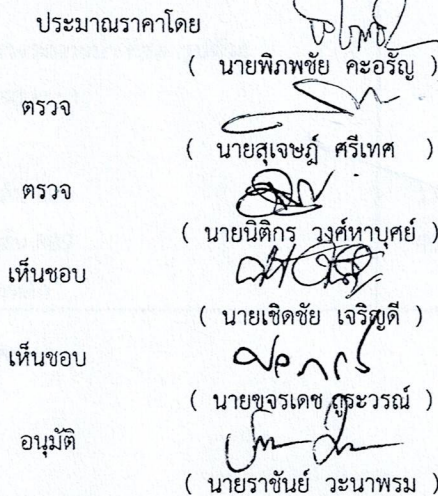 ประมาณราคาโดย
( นายพิภพชัย คะอรัญ )
ตรวจ
( นายสุเจษฎ์ ศรีเทศ )
ตรวจ
( นายนิติกร วงศ์หาบุศย์ )
เห็นชอบ
( นายเชิดชัย เจริญดี )
เห็นชอบ
( นายขจรเดช ถูระวรณ์ )
อนุมัติ
( นายราชันย์ วะนาพรม )